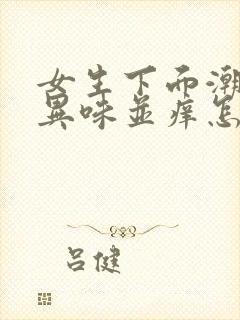 女生下面潮
異味並痒怎
吕健